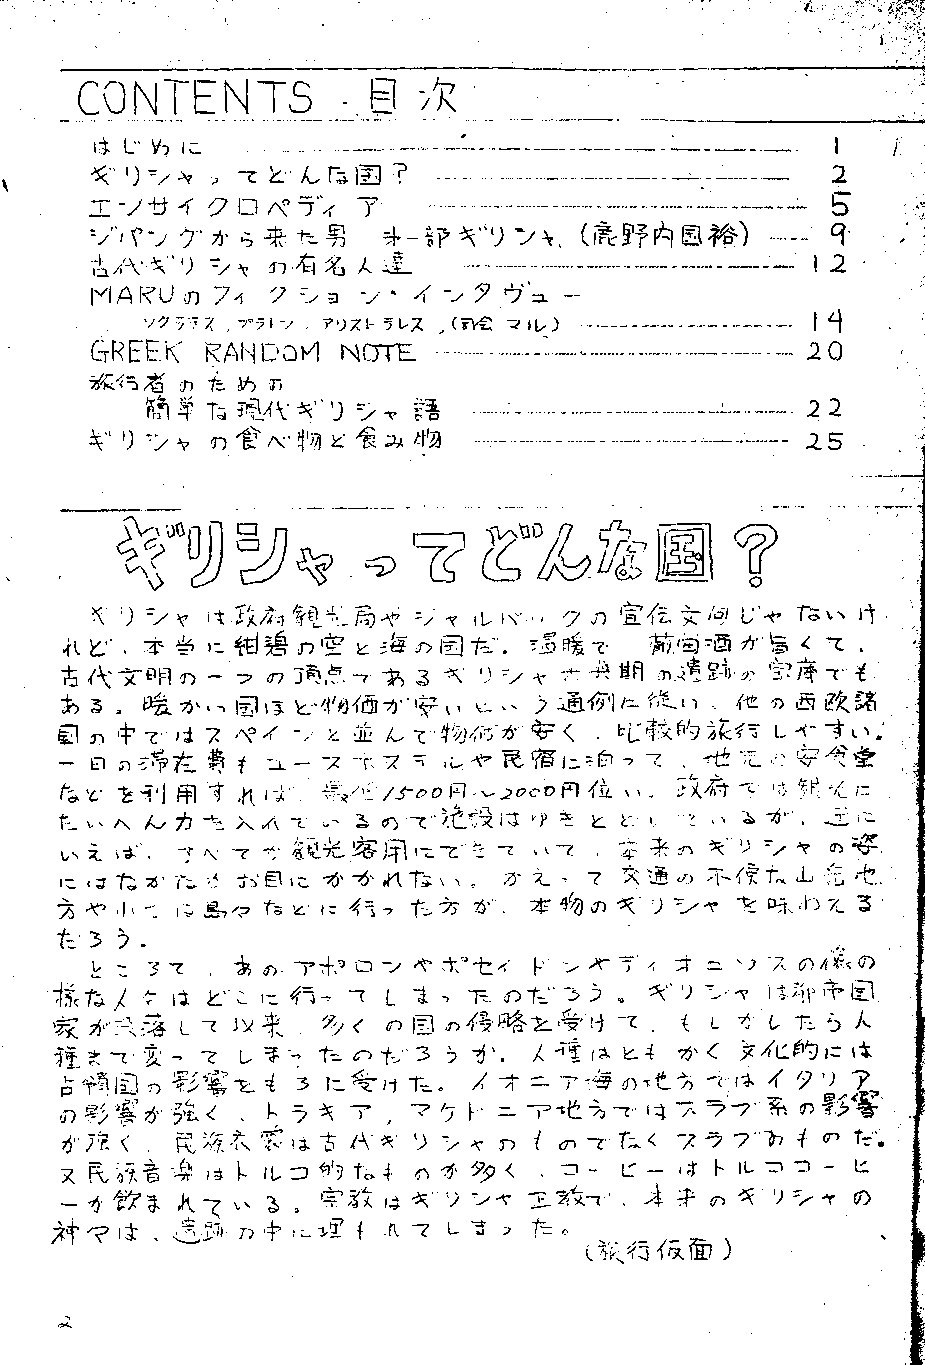 CONTENTS・目次
はじめに 1
ギリシャってどんな国? 2
エンサイクロペディア 5
ジパングから来た男 オー部ギリシャ (鹿野内国裕) 9
古代ギリシャの有名人達 12
MARUのフィクション・インタヴュー
ソクラテス, プラトン, アリストテレス, (司会 マル) 14
GREEK RANDOM NOTE 20
旅行者のための
簡単な現代ギリシャ語 22
ギリシャの食べ物と飲み物 25
ギリシャってどんな国?
ギリシャは政府観光局やジャルパックの宣伝文句じゃないけ
れど、本当に紺碧の空と海の国だ。温暖で 葡萄酒が旨くて、
古代文明の一つの頂点であるギリシャ古典期の遺跡の宝庫でも
ある。暖かい国ほど物価が安いという通例に従い、他の西欧諸
国の中ではスペインと並んで物価が安く、比較的旅行しやすい。
一日の滞在費もユースホステルや民宿に泊って、地元の安食堂
などを利用すれば、最低1500円〜2000円位い。政府では観光に
たいへん力を入れているので施設はゆきとどいているが、逆に
いえば、すべてが観光客用にできていて、本来のギリシャの姿
にはなかなかお目にかかれない。かえって交通の不便な山岳地
方や小さな島々などに行った方が、本物のギリシャを味わえる
だろう。
ところで、あのアポロンやポセイドンやディオニソスの像の
様な人々はどこに行ってしまったのだろう。ギリシャは都市国
家が没落して以来、多くの国の侵略を受けて、もしかしたら人
種まで変ってしまったのだろうか。人種はともかく文化的には
占領国の影響をもろに受けた。イオニア海の地方ではイタリア
の影響が強く、トラキア, マケドニア地方ではスラブ系の影響
が強く、民族衣裳は古代ギリシャのものでなくスラブのものだ。
又民族音楽はトルコ的なものが多く、コーヒーはトルココーヒ
ーが飲まれている。宗教はギリシャ正教で、本来のギリシャの
神々は、遺跡の中に埋もれてしまった。
(旅行仮面)
2